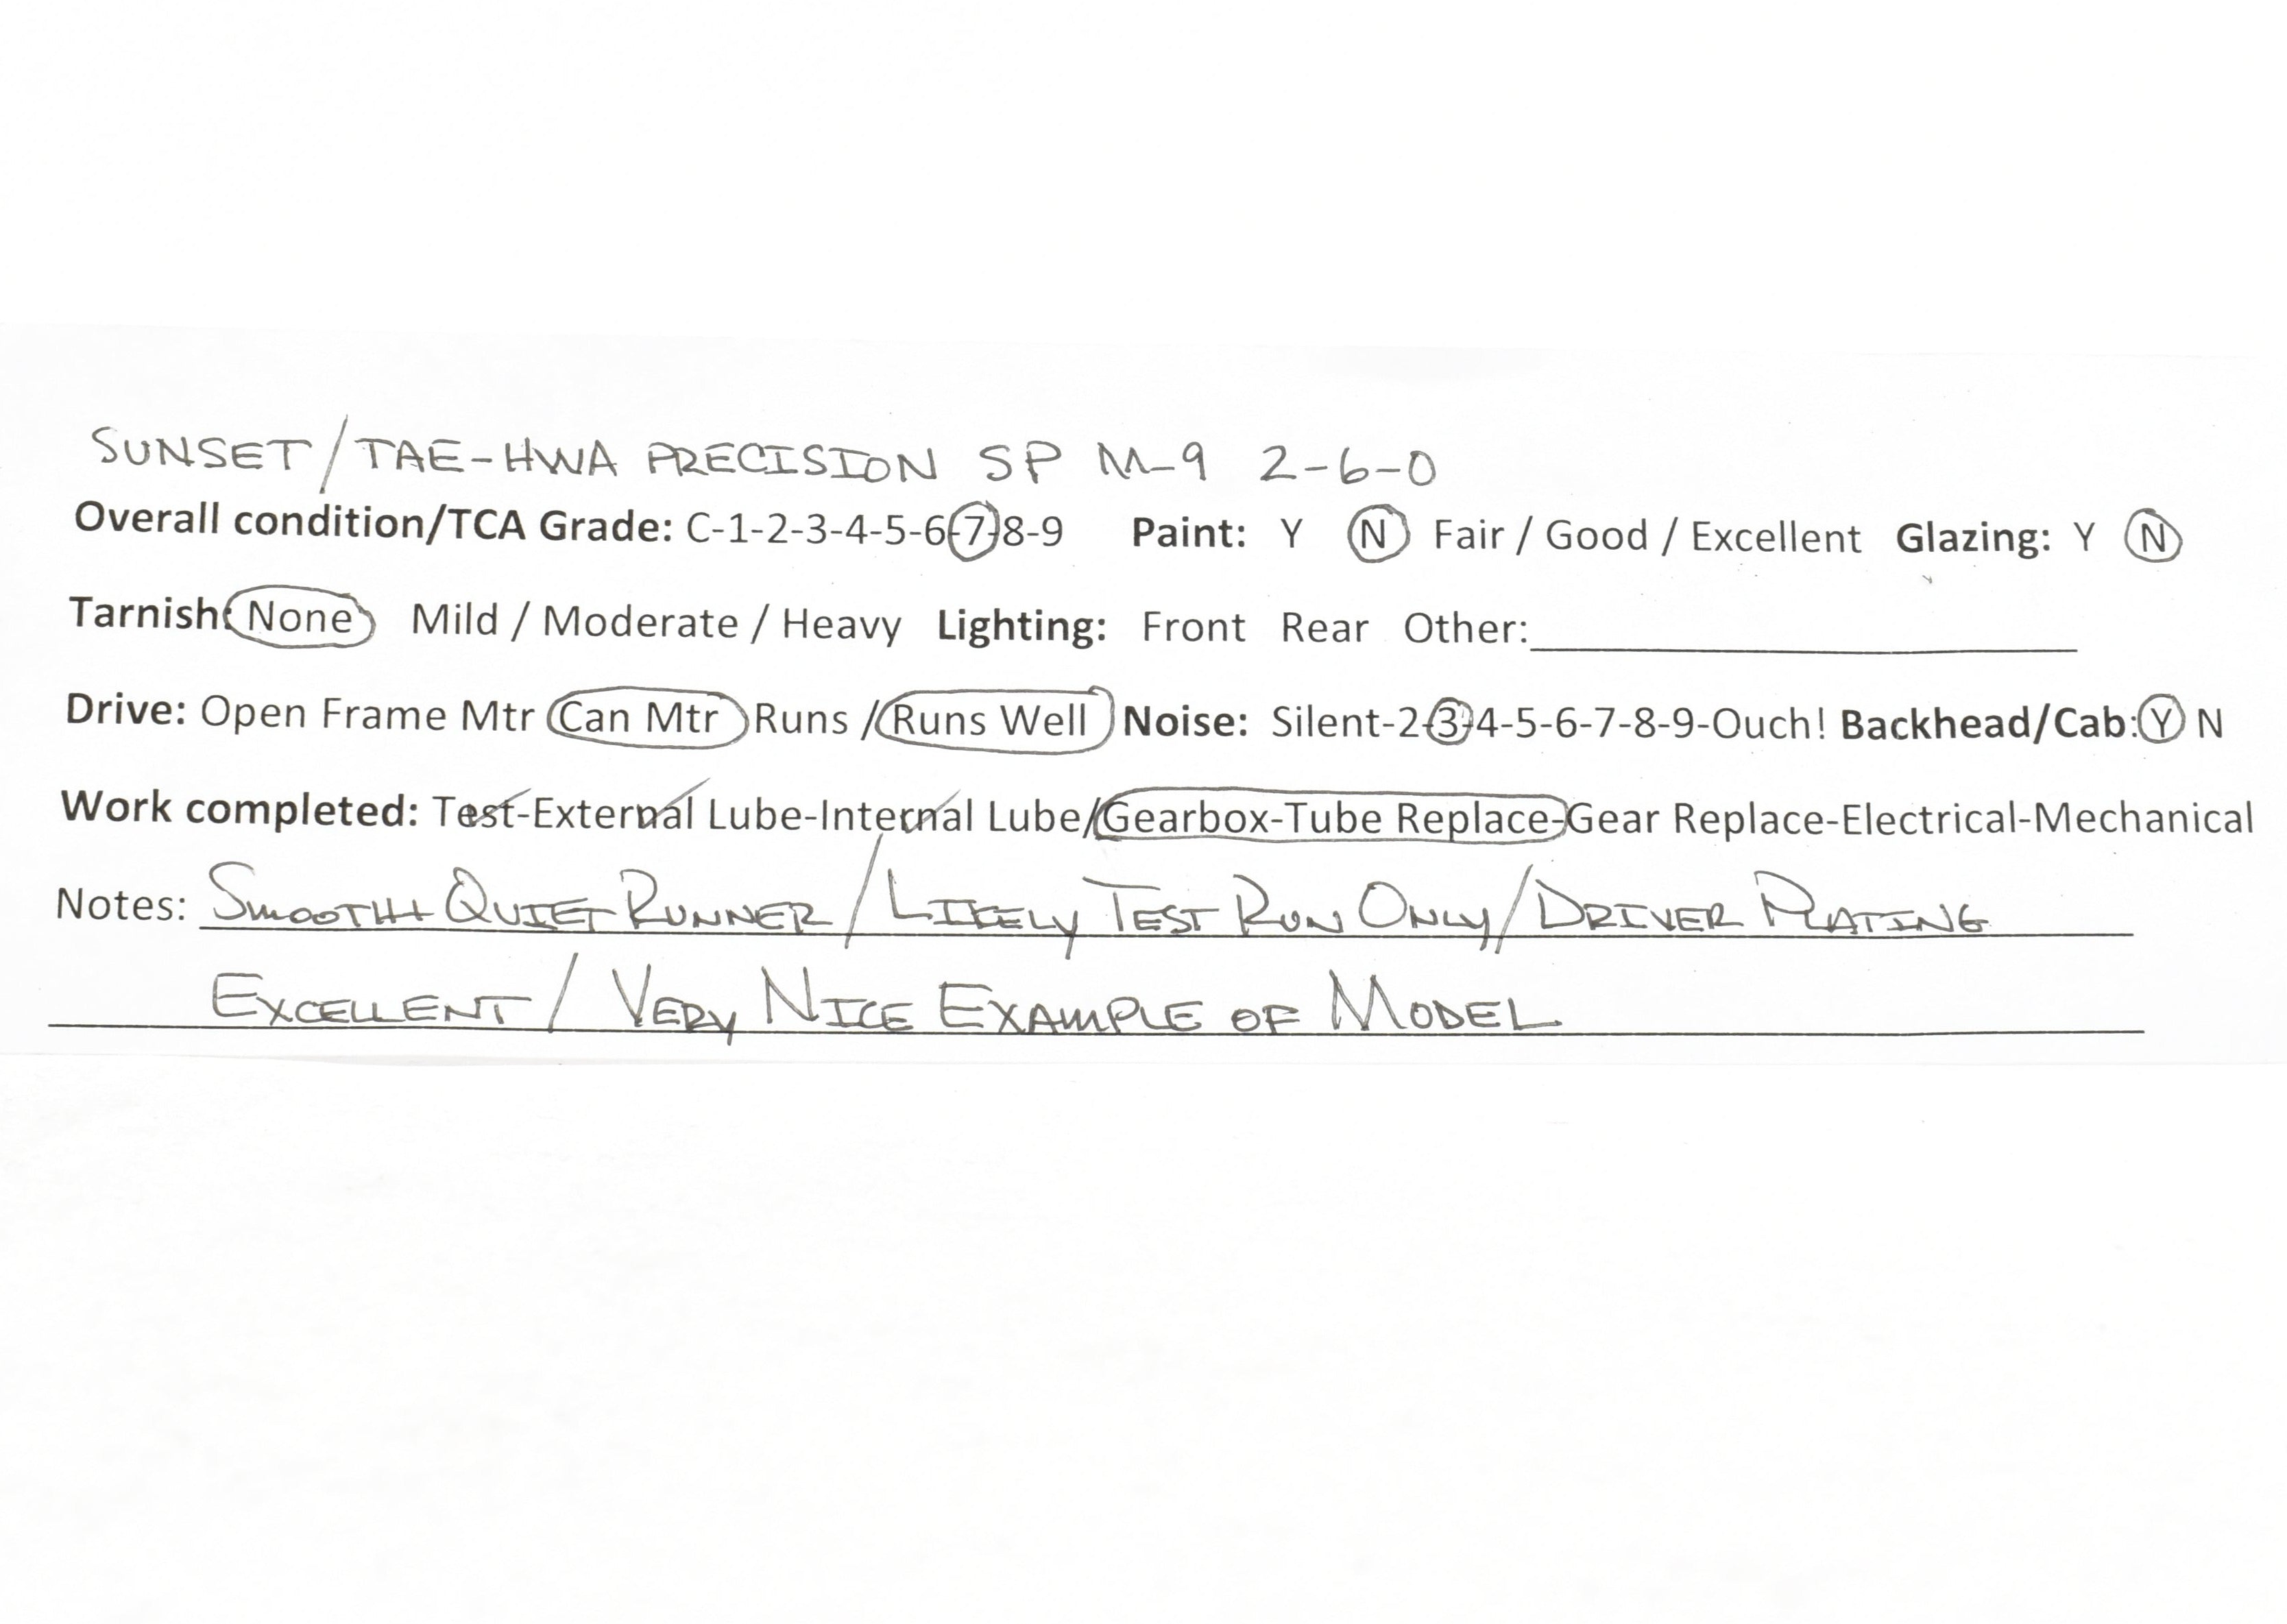 SUNSET/TAE-HWA PRECISION SP M-9 2-6-0
Overall condition/TCA Grade: C-1-2-3-4-5-6-7-8-9 Paint: Y N Fair / Good / Excellent Glazing: Y N
Tarnish: None Mild / Moderate / Heavy Lighting: Front Rear Other:
Drive: Open Frame Mtr Can Mtr Runs / Runs Well Noise: Silent-2-3-4-5-6-7-8-9-Ouch! Backhead/Cab: Y N
Work completed: Test-External Lube-Internal Lube/Gearbox-Tube Replace-Gear Replace-Electrical-Mechanical
Notes: SMOOTH + QUIET RUNNER / LIKELY TEST RUN ONLY / DRIVER PLATING
EXCELLENT / VERY NICE EXAMPLE OF MODEL